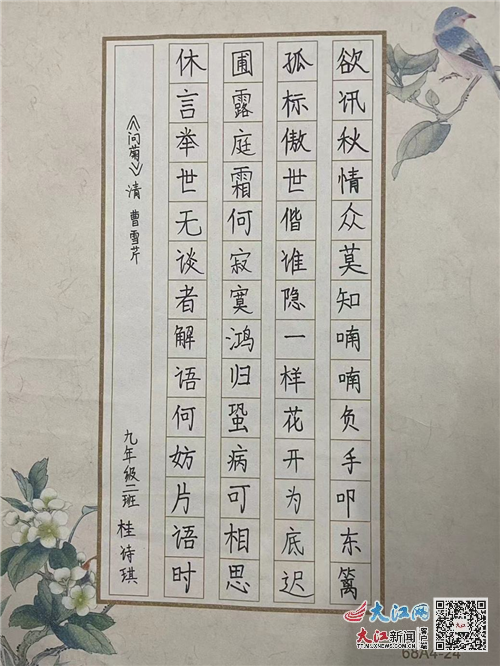 欲讯秋情众莫知喃喃负手叩东篱
孤标傲世偕谁隐一样花开为底迟
圃露庭霜何寂寞鸿归蛩病可相思
休言举世无谈者解语何妨片语时
《问菊》清 曹雪芹 九年级二班 桂诗琪
大江网
大江新闻 客户端
TT.M.JXNEWS.COM.CN
68A4-24